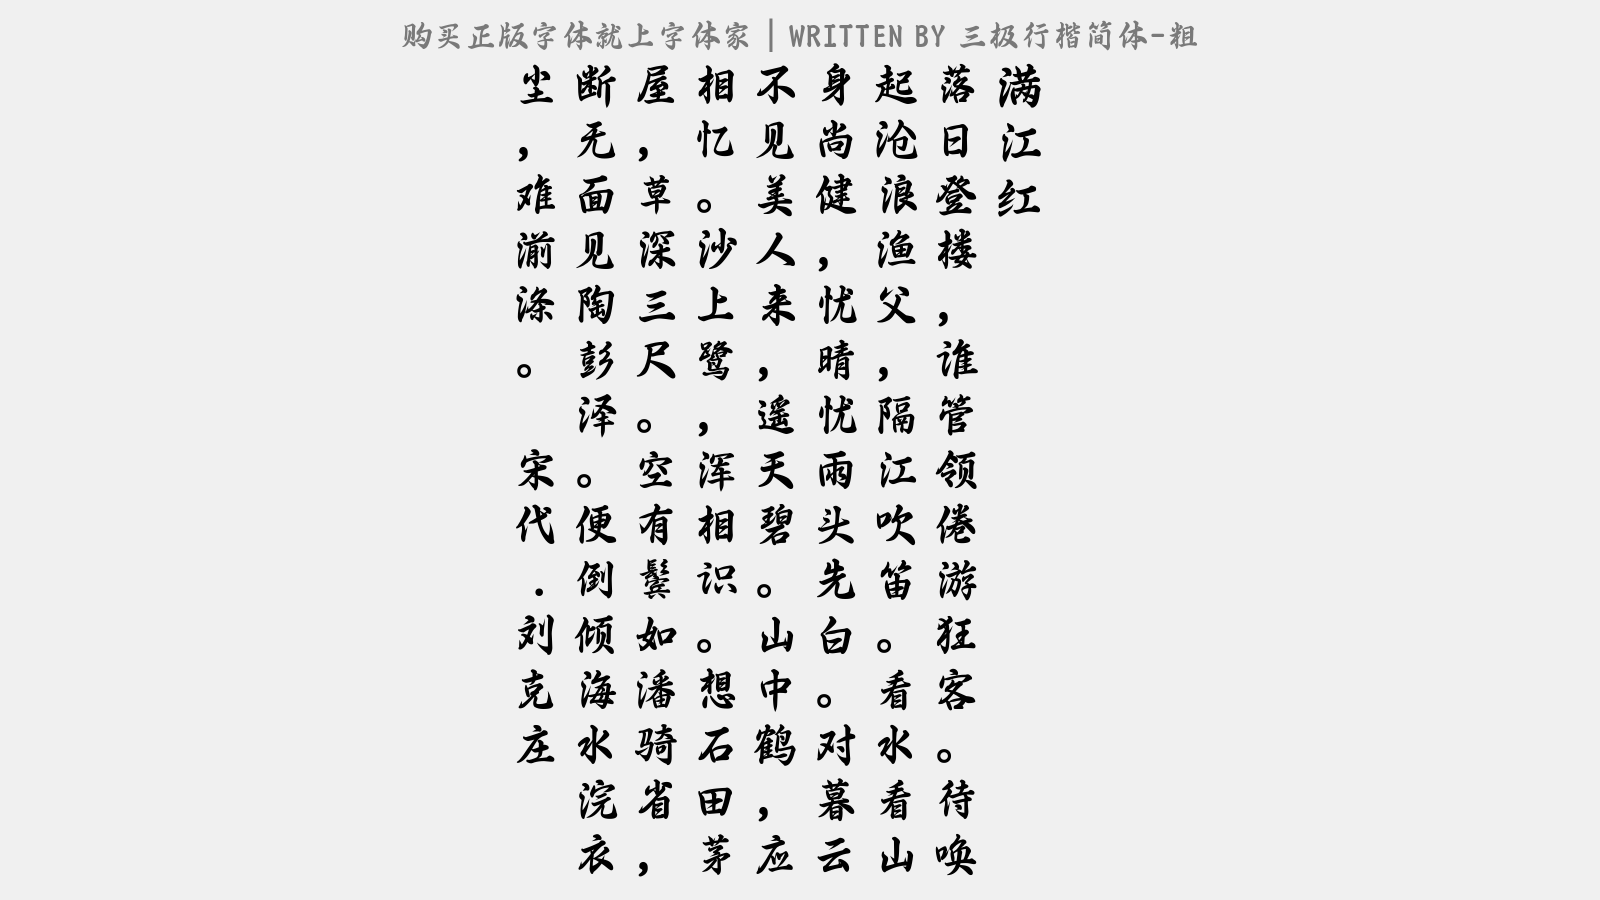 购买正版字体就上字体家｜WRITTEN BY 三极行楷简体-粗
满江红
落日登楼，谁管领倦游狂客。待唤
起沧浪渔父，隔江吹笛。看水看山
身尚健，忧晴忧雨头先白。对暮云
不见美人来，遥天碧。山中鹤，应
相忆。沙上鹭，浑相识。想石田茅
屋，草深三尺。空有鬓如潘骑省，
断无面见陶彭泽。便倒倾海水浣衣
尘，难湔涤。 宋代．刘克庄